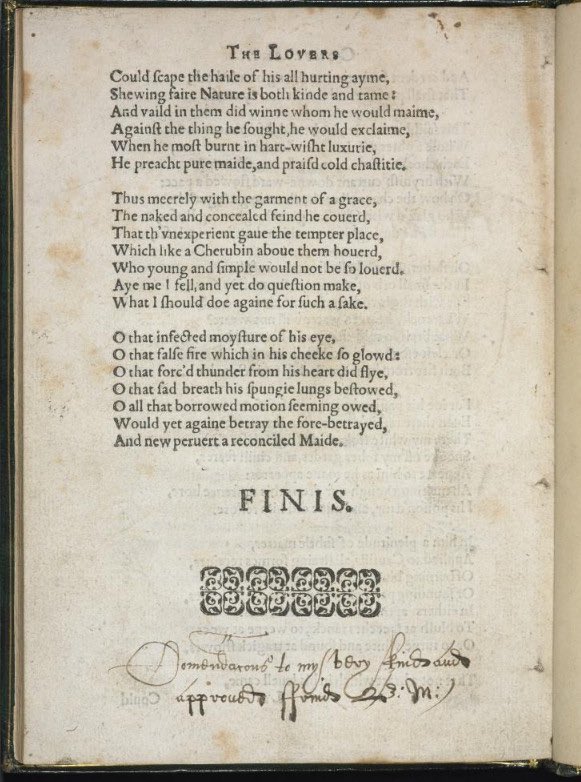 THE LOVERS
Could ſcape the haile of his all hurting ayme,
Shewing faire Nature is both kinde and tame:
And vaild in them did winne whom he would maime,
Againſt the thing he ſought, he would exclaime,
When he moſt burnt in hart-wiſht luxurie,
He preacht pure maide, and praiſd cold chaſtitie.
Thus meerely with the garment of a grace,
The naked and concealed feind he couerd,
That th'vnexperient gaue the tempter place,
Which like a Cherubin aboue them houerd,
Who young and ſimple would not be ſo louerd.
Aye me I fell, and yet do queſtion make,
What I ſhould doe againe for ſuch a ſake.
O that infected moyſture of his eye,
O that falſe fire which in his cheeke ſo glowd:
O that forc'd thunder from his heart did flye,
O that ſad breath his ſpungie lungs beſtowed,
O all that borrowed motion ſeeming owed,
Would yet againe betray the fore-betrayed,
And new peruert a reconciled Maide.
FINIS.
to my very kind and
approued ffreind M:
Could